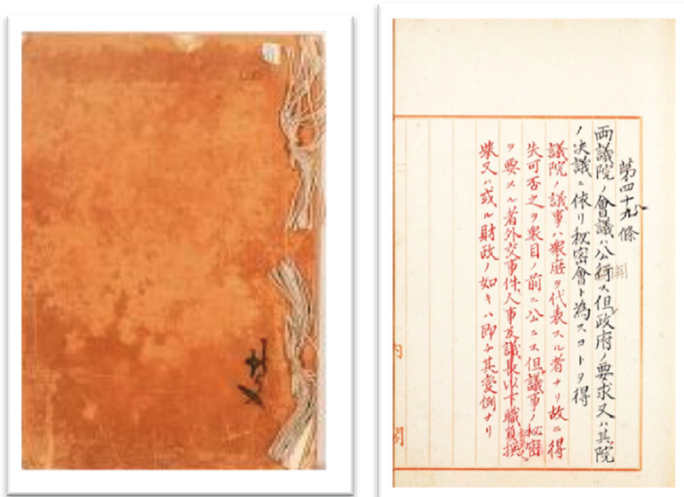 第四十九條
両議院ノ會議ハ公行ス但政府ノ要求又ハ其院
ノ決議ニ依リ秘密會ト為スコトヲ得
議院ノ議事ハ衆庶ヲ代表スル者ナリ故ニ得
失可否之ヲ衆目ノ前ニ公ニス但議事ノ秘密
ヲ要スル者外交事件人事及議長以下職員撰
挙又ハ或ル財政ノ如キハ即チ其変例ナリ
内閣